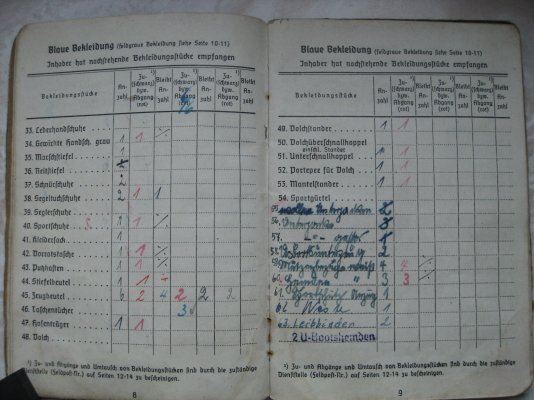 Blaue Bekleidung (feldgraue Bekleidung siehe Seite 10-11)
Inhaber hat nachstehende Bekleidungsstücke empfangen
Bekleidungsstücke An-zahl Zu- (schwarz) bzw. Abgang (rot) Bleibt An-zahl Zu- (schwarz) bzw. Abgang (rot) Bleibt An-zahl Zu- (schwarz) bzw. Abgang (rot) Bleibt An-zahl
33. Lederhandschuhe
34. Gewirkte Handsch. grau 1 1
35. Marschstiefel 1
36. Reitstiefel
37. Schnürschuhe 2
38. Segeltuchschuhe 2 1 1
39. Seglerschuhe
40. Sportschuhe 1 1
41. Kleidersack 1
42. Vorratstasche 1 1
43. Putzkasten 1 1
44. Stiefelbeutel 1 1
45. Zeugbeutel 6 2 4 2 2 2
46. Taschentücher 3
47. Hosenträger 1 1
48. Dolch
¹) Zu- und Abgänge und Umtausch von Bekleidungsstücken sind durch die zuständige
Dienststelle (Feldpost-Nr.) auf Seiten 12-14 zu bescheinigen.
8
Blaue Bekleidung (feldgraue Bekleidung siehe Seite 10-11)
Inhaber hat nachstehende Bekleidungsstücke empfangen
Bekleidungsstücke An-zahl Zu- (schwarz) bzw. Abgang (rot) Bleibt An-zahl Zu- (schwarz) bzw. Abgang (rot) Bleibt An-zahl Zu- (schwarz) bzw. Abgang (rot) Bleibt An-zahl
49. Dolchständer 1 1
50. Dolchüberschnallkoppel
einschl. Ständer
51. Unterschnallkoppel 1 1
52. Portepee für Dolch 1 1
53. Mantelständer 1 1
54. Sportgürtel
55. 2
56.
57.
58. 2
59. 4 4
60. 3 3
61. 1
62. Weste 1
63. Leibbinden 2
2 U-Bootshemden
¹) Zu- und Abgänge und Umtausch von Bekleidungsstücken sind durch die zuständige
Dienststelle (Feldpost-Nr.) auf Seiten 12-14 zu bescheinigen.
9